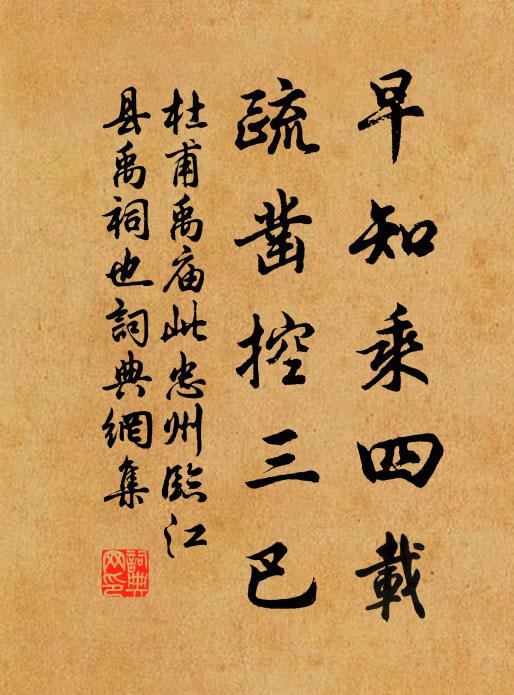 早知乘四載
疏鑿控三巴
杜甫禹庙此忠州臨江
县禹祠也詞典網集
詞典網印